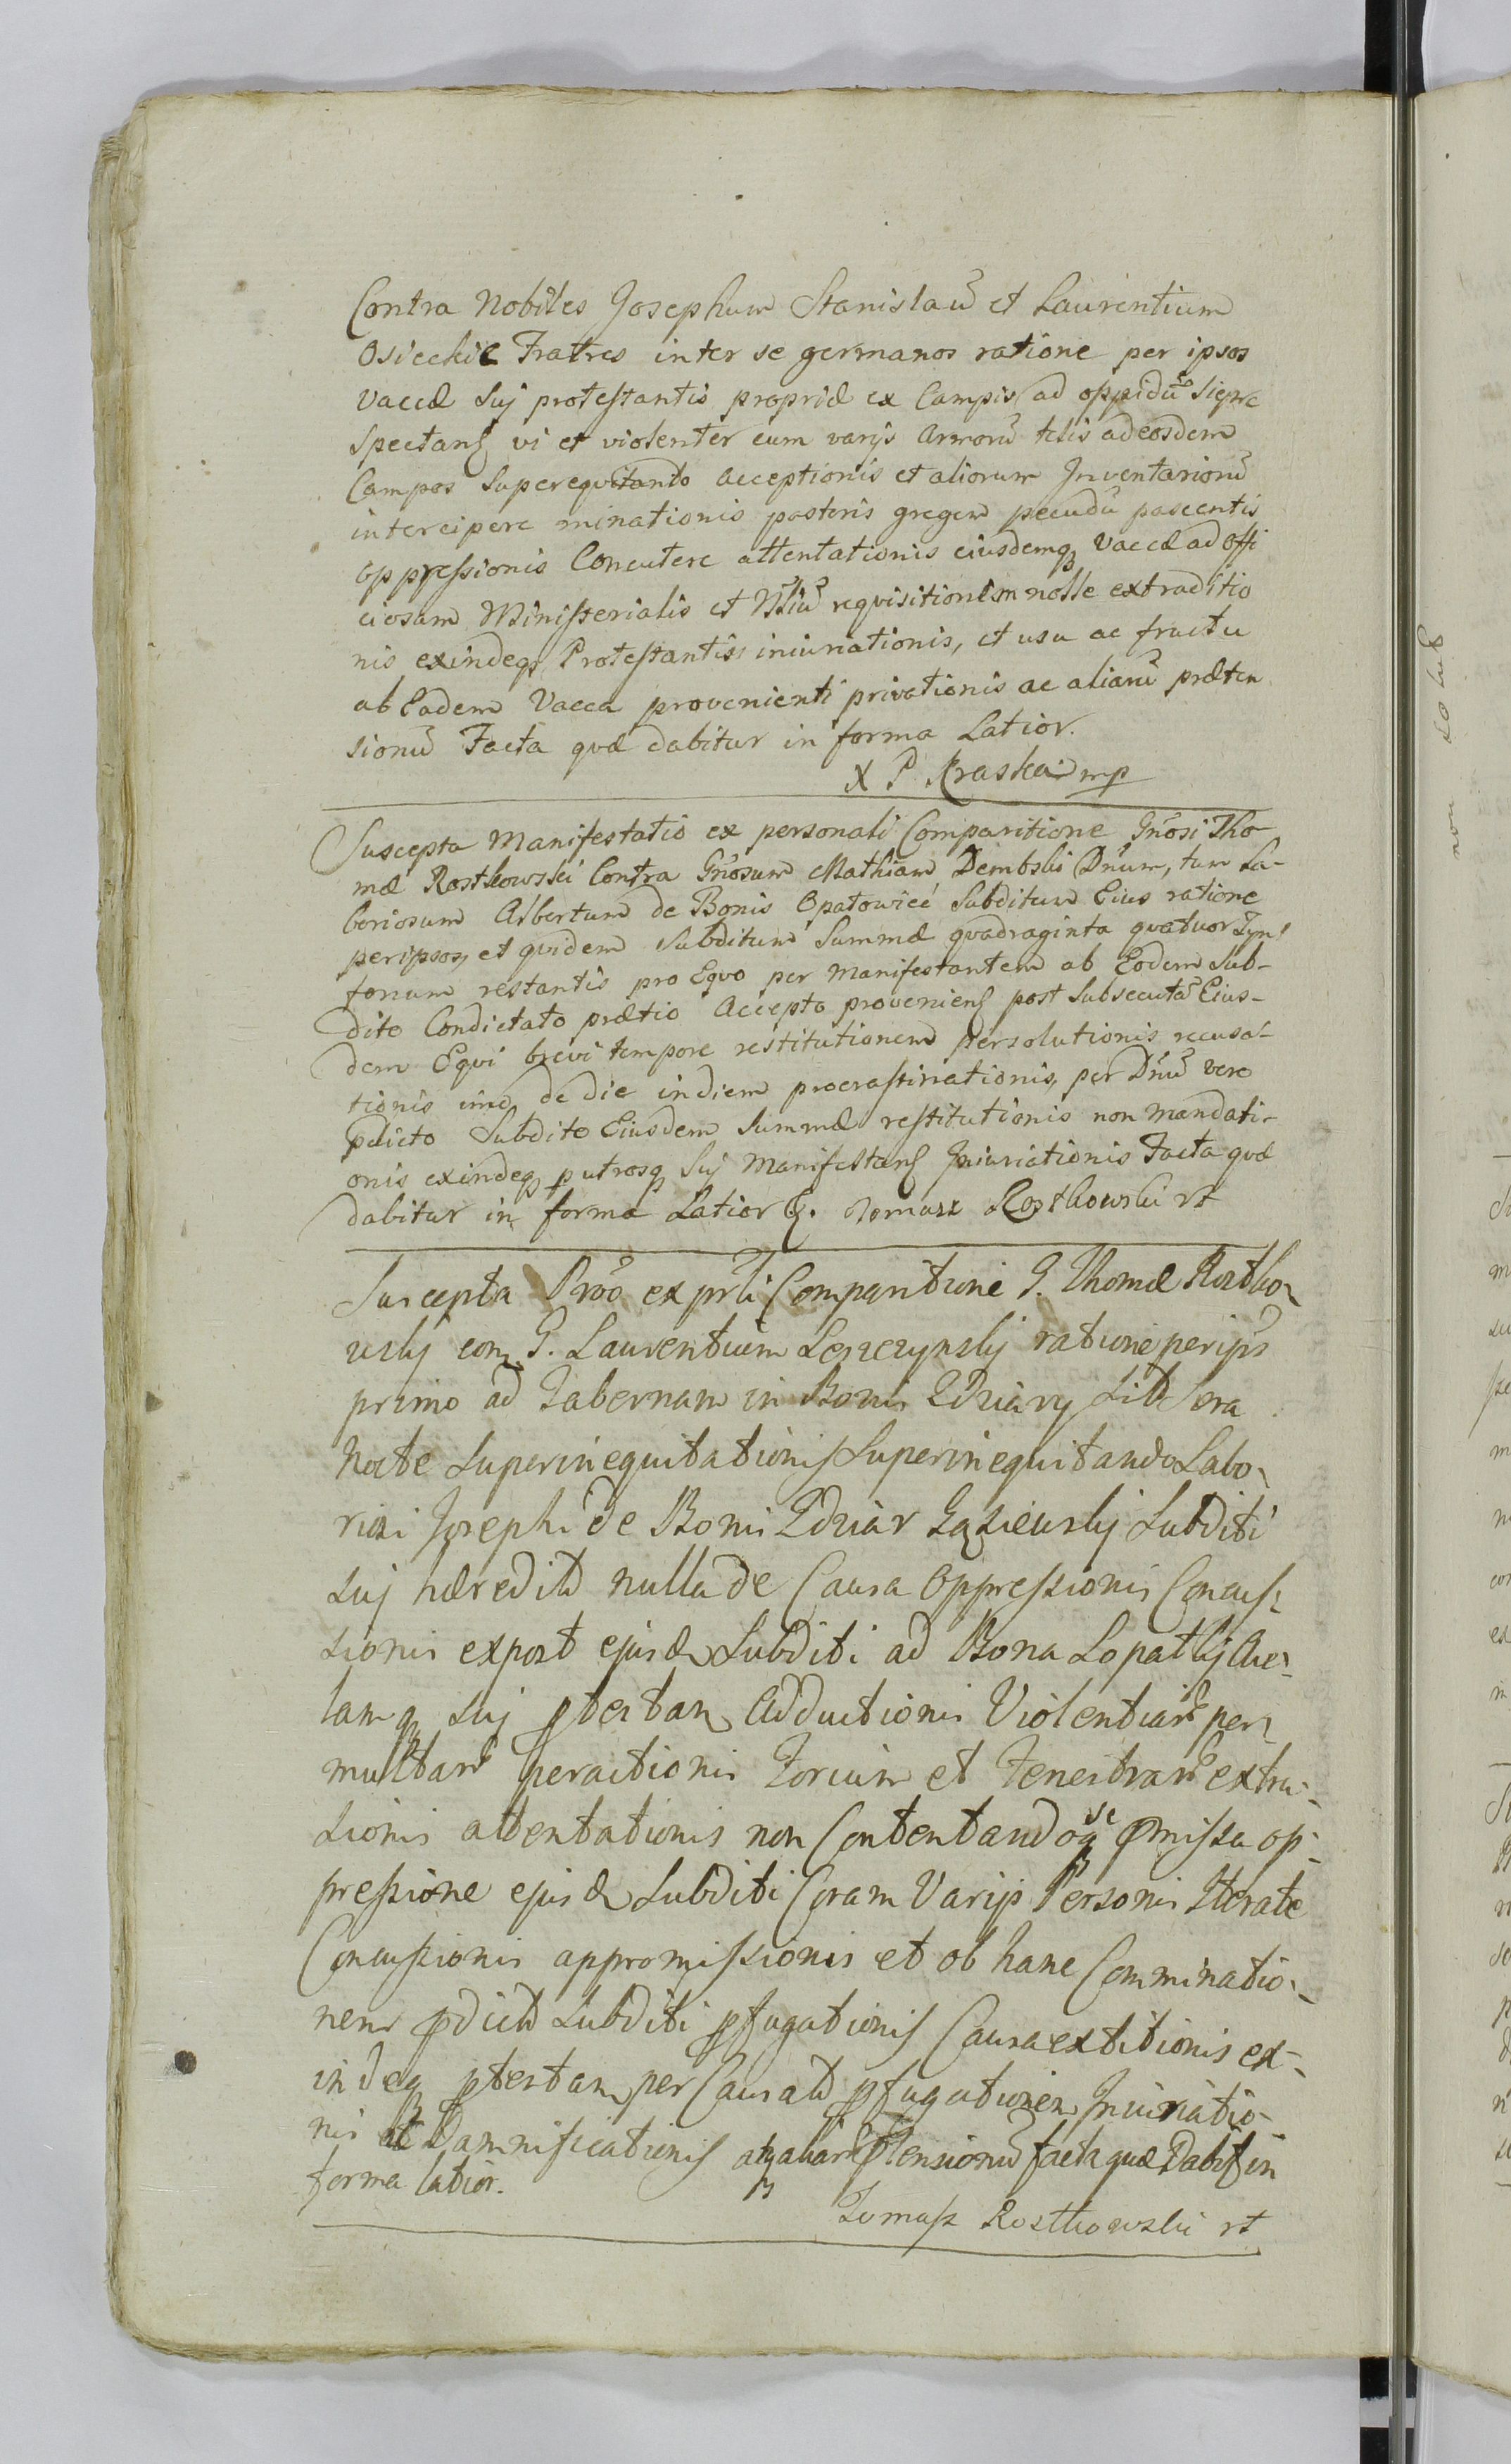 Contra Nobiles Josephum Stanislaũ et Laurentium
Osieckie Fratres inter se germanos ratione per ipsos
Vaccæ Sui protestantis propriæ ex Campis ad oppidũ
Spectan vi et violenter cum varijs Armorũ telis ad eosdem
Campos Superequitando acceptionis et aliorum Inventariorũ
intercipere minationis pastoris gregem pecudũ pascentis
oppressionis Concutere attentationis eiusdemq Vaccæ ad offi
ciosam Ministerialis et requisitionem nolle extraditio
nis exindeq Protestantis iniuriationis, et usu ac fructu
ab Eadem Vacca provenienti privationis ac aliarũ præten
sionũ Facta quæ dabitur in forma Latior.
X P Kraska mp
Suscepta Manifestatio ex personali Comparitione Gñosi Tho-
mæ Rostkowski Contra Gñosum Mathiam Dembski Dñum, tum La-
boriosum Albertum de Bonis Opatowice Subditum Eius ratione
per ipsos, et quidem Subditum Summæ quadraginta quatuor Tyn
fonum restantis pro Equo per Manifestantem ab Eodem Sub-
dito Condictato prætio Accepto provenien post Subsecutã Eius-
dem Equi brevi tempore restitutionem Persolutionis recusa-
tionis imo de die in diem procrastinationis, per Dñũ vero
pdicto Subdito Eiusdem Summæ restitutionis non Mandati-
onis exindeq p utrosq Sui Manifestan Iniuriationis Facta quæ
dabitur in forma Latior. Tomasz Rostkowski rt
Suscepta Prõo ex prli Comparitione G. Thomæ Rostko-
wskj con G. Laurentium Leszczynskj ratione per ips
primo ad Tabernam in Bonis Zdziary Sera
Nocte Superinequitationis Superinequitando Labo-
riosi Josephi de Bonis Zdziar Subditi
sui hæredit nulla de Causa Oppressionis Concuss-
sionis expost ejusd Subditi ad Bona Lopatky
lamq sui ptestan Adductionis Violentiar per-
multar peractionis Forium et Fenestrar extru-
sionis attentationis non Contentandoq se pmissa op-
pressione ejusd Subditi Coram Varijs Personis Iterate
Concussionis appromissionis et ob hanc Comminatio-
nem pdicti Subditi pfugationis Causa extitionis ex-
indeq ptestan per pfugationem Iniuriatio-
nis et Damnificationis atq aliar ptensionũ facta quæ Dabit in
forma latior.
Tomasz Rostkowski rt